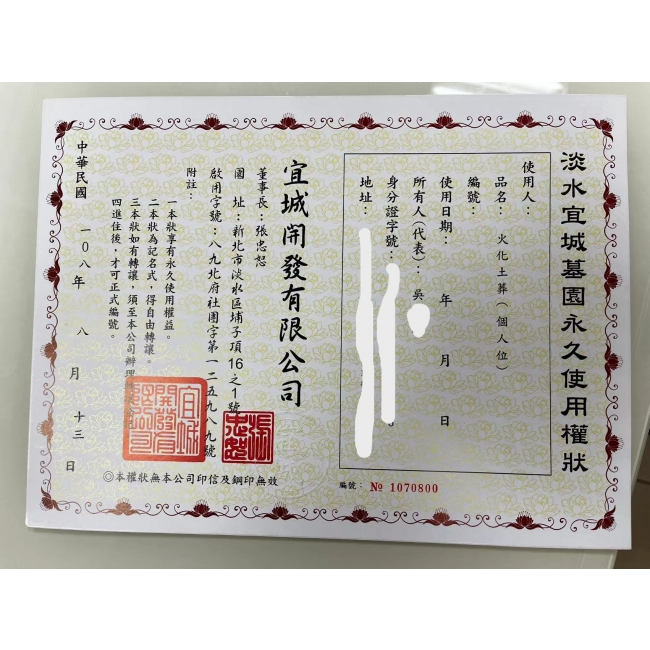 淡水宜城墓園永久使用權狀
使用人：
品名：火化土葬(個人位)
編號：
使用日期：　年　月　日
所有人(代表)：吳
身分證字號：
地址：
編號：
№ 1070800
宜城開發有限公司
董事長：張忠恕
園址：新北市淡水區埔子項16之1號
啟用字號：八九北府社團字第一二五九八九號
附註：
一本狀享有永久使用權益。
二本狀為記名式，得自由轉讓。
三本狀如有轉讓，須至本公司辦理
四進住後，才可正式編號。
宜城開發有限公司
張忠恕
◎本權狀無本公司印信及鋼印無效
中華民國 一○八年 八月 十三日